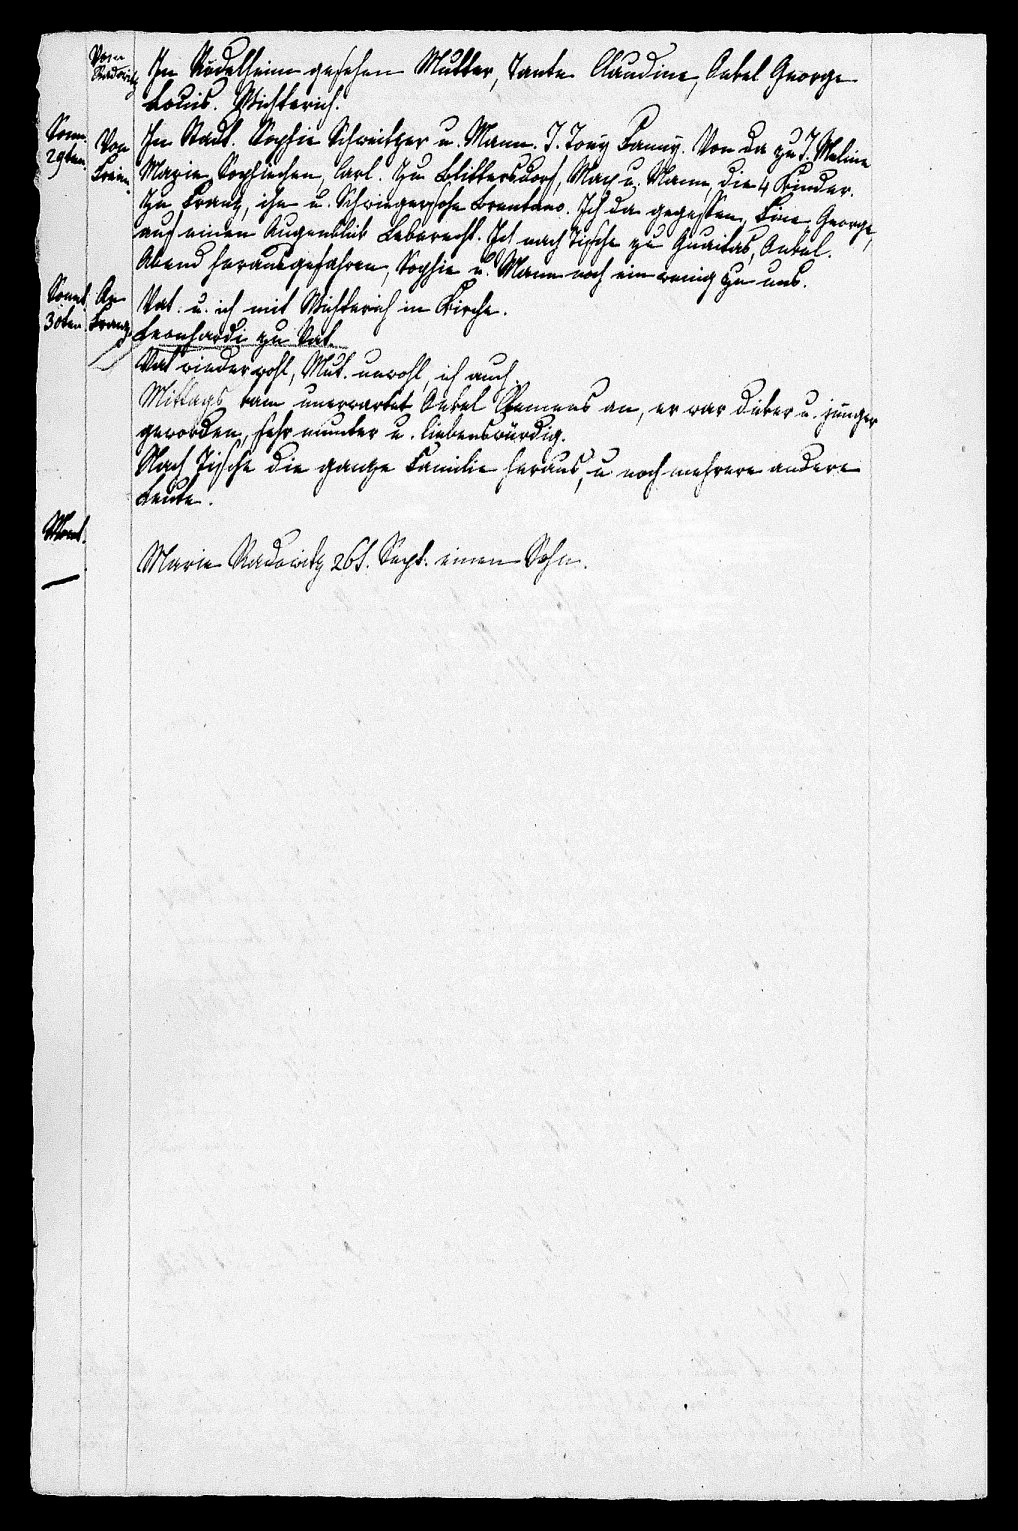 Von
Radowitz
In Rödelheim gesehen Mutter, Tante Claudine, Onkel George
Louis. Wichterich.
Sonn.
29ten
Von
In Stadt. Sophie Schweitzer u. Mann. T. Tony Fanny. Von da zu T. Meline
Marie Sophiechen, Carl. Zu Blittersdorf, Max u. Mann, die 4 Kinder.
Zu Franz, ihn u. Schwiegersohn Brentano. Ich da gegessen, Line, George,
auf einen Augenblik Leberecht. Ich nach Tische zu Guaitas, Onkel.
Abend herausgefahren, Sophie u. Mann noch ein wenig zu uns.
Sonnt.
30ten
An
Franz
Vat. u. ich mit Wichterich in Kirche.
Leonhardi zu Vat.
Vat wieder wohl, Mut. unwohl, ich auch.
Mittags kam unerwartet Onkel Clemens an, er war dicker u. jünger
geworden, sehr munter u. liebenswürdig.
Nach Tische die ganze Familie heraus, u. noch mehrere andere
Leute.
Mont.
Marie Radowitz 26t. Sept. einen Sohn.